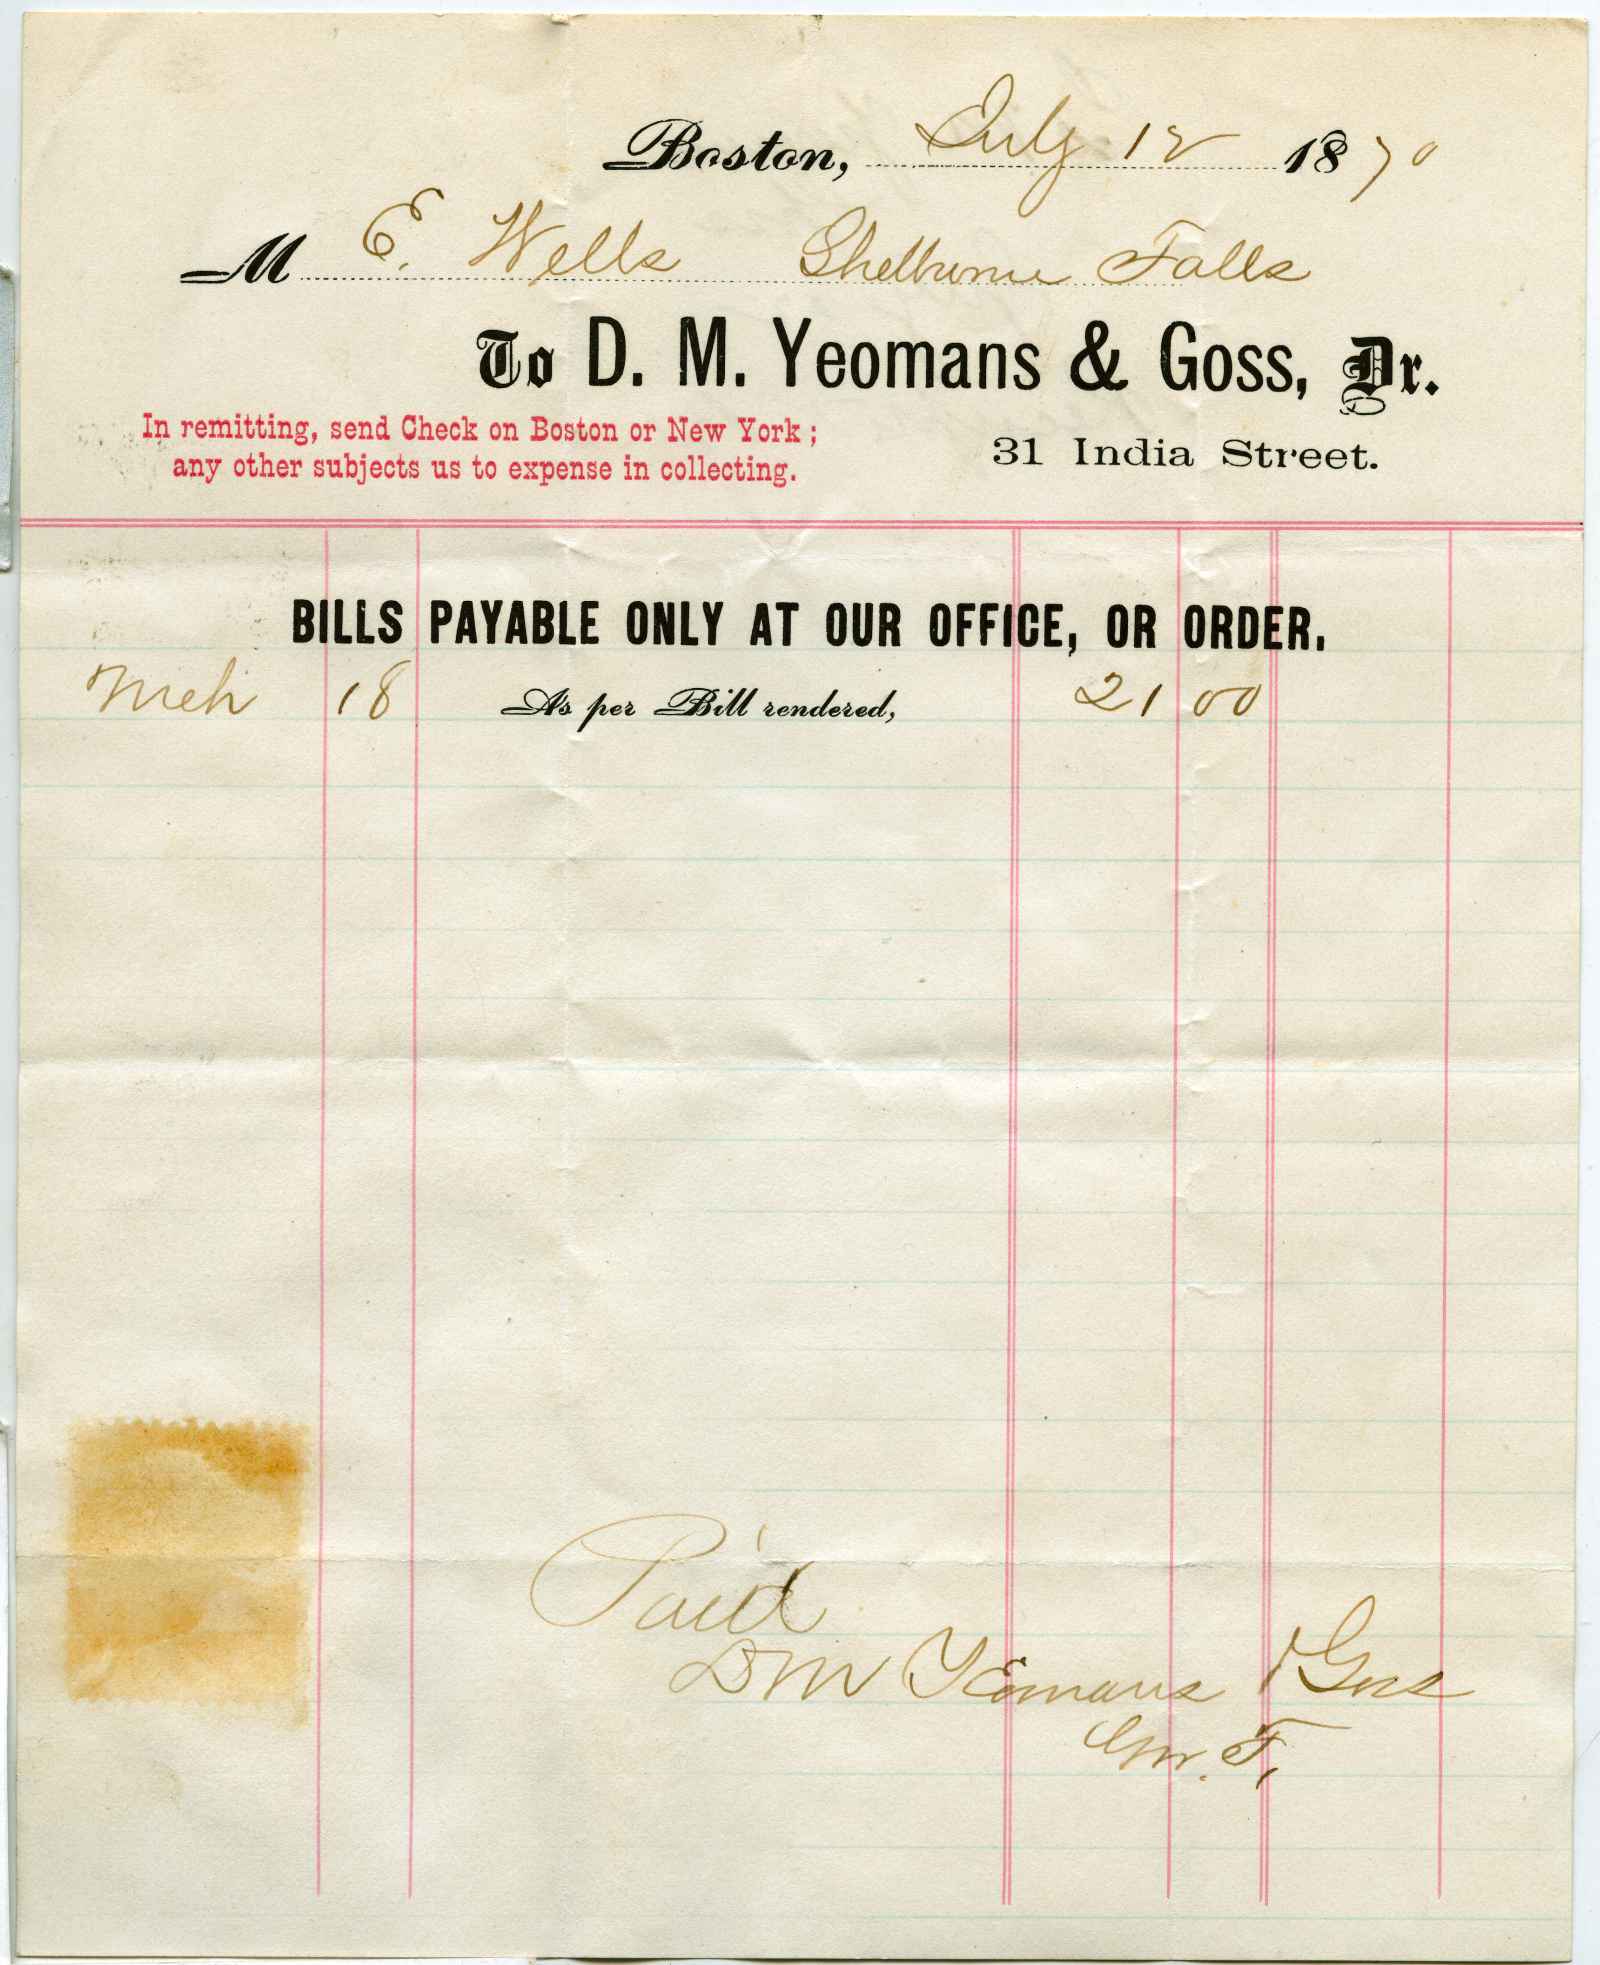 Boston, July 12 1870
M E. Wells Shelburne Falls
To D. M. Yeomans & Goss, Dr.
In remitting, send Check on Boston or New York;
any other subjects us to expense in collecting.
31 India Street.
BILLS PAYABLE ONLY AT OUR OFFICE, OR ORDER.
Mch 18 As per Bill rendered, 21 00
Paid
DM Yeomans & Goss